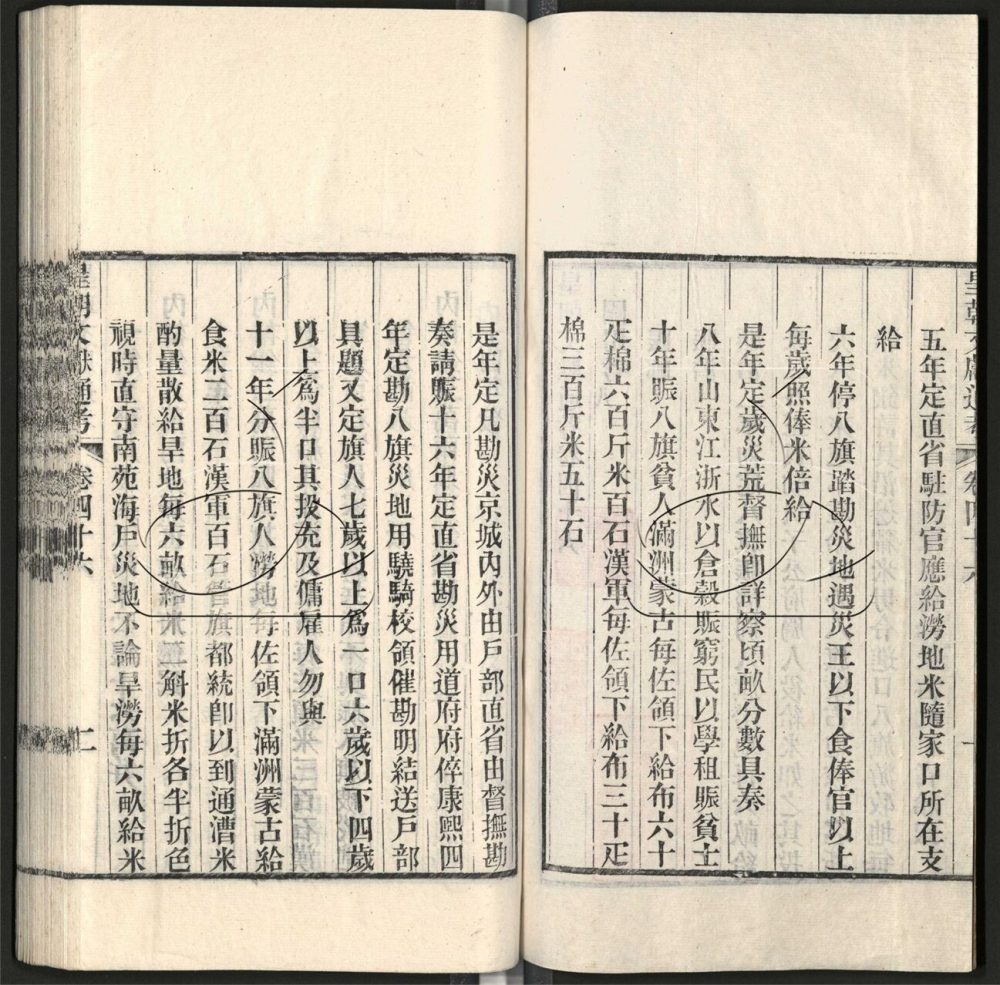 五年定直省駐防官應給澇地米隨家口所在支
給
六年停八旗踏勘災地遇災王以下食俸官以上
每歲照俸米倍給
是年定歲災荒督撫卽詳察頃畝分數具奏
八年山東江浙水以倉穀賑窮民以學租賑貧士
十年賑八旗貧人滿洲蒙古每佐領下給布六十
疋棉六百斤米百石漢軍每佐領下給布三十疋
棉三百斤米五十石
是年定凡勘災京城內外由戶部直省由督撫勘
奏請賑十六年定直省勘災用道府府倅康熙四
年定勘八旗災地用驍騎校領催勘明結送戶部
具題又定旗人七歲以上爲一口六歲以下四歲
以上爲半口其投充及傭雇人勿與
十一年分賑八旗人澇地每佐領下滿洲蒙古給
食米二百石漢軍百石管旗都統卽以到通漕米
酌量散給旱地每六畝給米一斛米折各半折色
視時直守南苑海戶災地不論旱澇每六畝給米
皇朝文獻通考
卷四十六
二